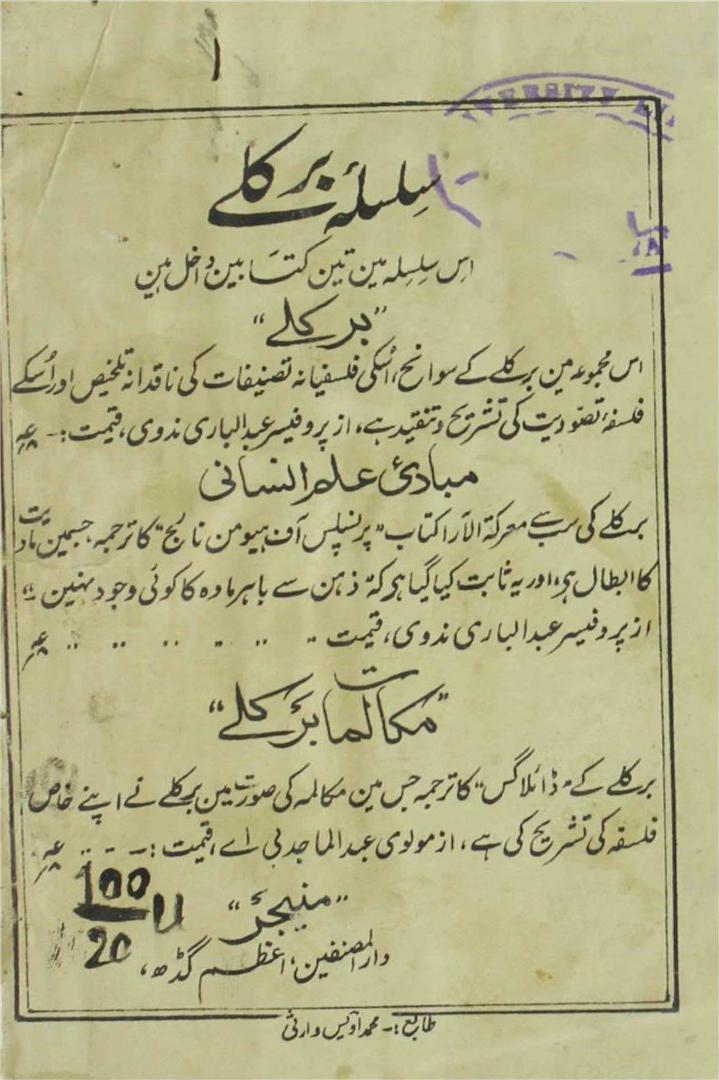 ۱
UNIVERSITY
سلسلۂ برکلے
اس سلسلہ مین تین کتابین داخل ہین
"برکلے"
اس مجموعہ مین برکلے کے سوانح، اُسکی فلسفیانہ تصنیفات کی ناقدانہ تلخیص اور اُسکے
فلسفۂ تصوّریت کی تشریح و تنقید ہے، از پروفیسر عبدالباری ندوی، قیمت:-
مبادئ علم انسانی
برکلے کی سب سے معرکۃ الآرا کتاب "پرنسپلس آف ہیومن نالج" کا ترجمہ جسمین مادیت
کا ابطال ہی، اور یہ ثابت کیا گیا ہی کہ ذہن سے باہر مادہ کا کوئی وجود نہین ہے
از پروفیسر عبدالباری ندوی، قیمت
"مکالمات برکلے"
برکلے کے "ڈائلاگس" کا ترجمہ جس مین مکالمہ کی صورت مین برکلے نے اپنے خاص
فلسفہ کی تشریح کی ہے، از مولوی عبدالماجد بی اے، قیمت:-
100
20
"منیجر"
دارالمصنفین، اعظم گڈھ،
طابع:- محمد اویس وارثی